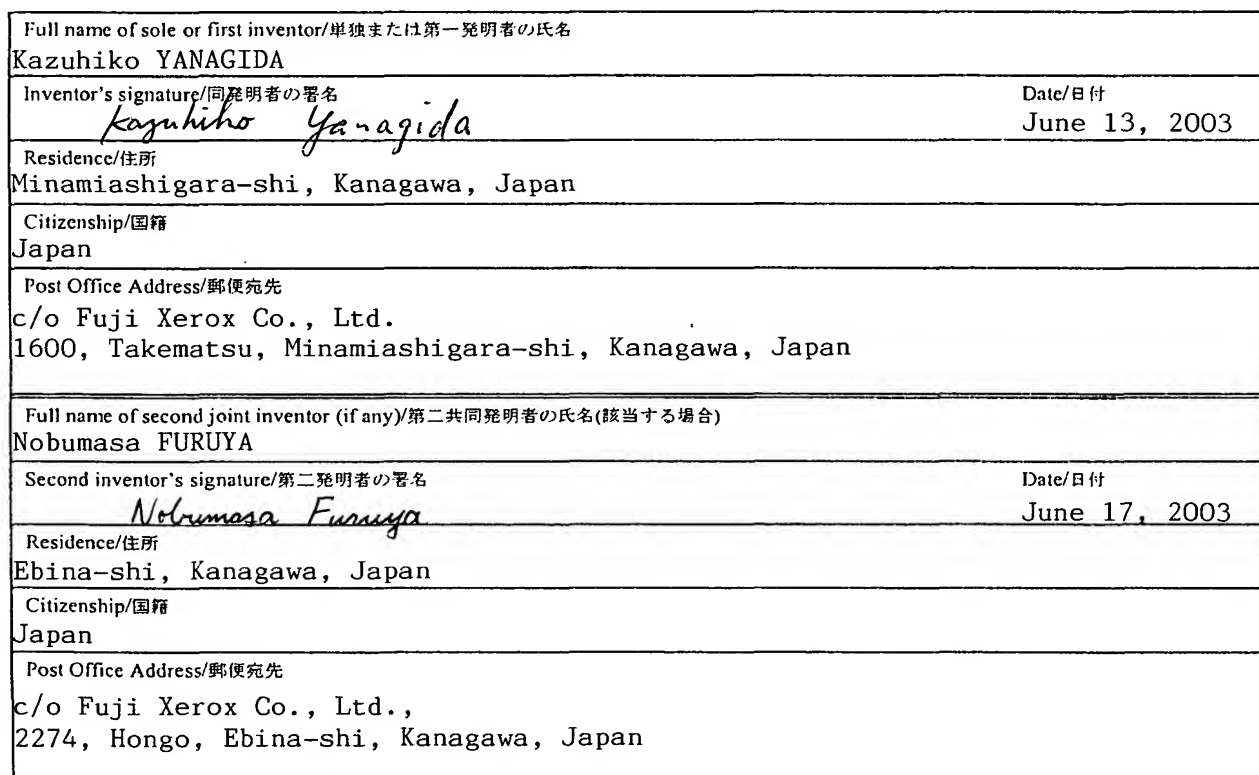 Full name of sole or first inventor/単独または第一発明者の氏名
Kazuhiko YANAGIDA
Inventor's signature/同発明者の署名 Date/日付
Kazuhiko Yanagida June 13, 2003
Residence/住所
Minamiashigara-shi, Kanagawa, Japan
Citizenship/国籍
Japan
Post Office Address/郵便宛先
c/o Fuji Xerox Co., Ltd.
1600, Takematsu, Minamiashigara-shi, Kanagawa, Japan
Full name of second joint inventor (if any)/第二共同発明者の氏名(該当する場合)
Nobumasa FURUYA
Second inventor's signature/第二発明者の署名 Date/日付
Nobumasa Furuya June 17, 2003
Residence/住所
Ebina-shi, Kanagawa, Japan
Citizenship/国籍
Japan
Post Office Address/郵便宛先
c/o Fuji Xerox Co., Ltd.,
2274, Hongo, Ebina-shi, Kanagawa, Japan